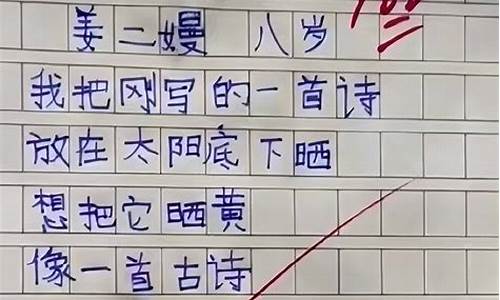 姜二嫚 八岁
我把刚写的一首诗
放在太阳底下晒
想把它晒黄
像一首古诗